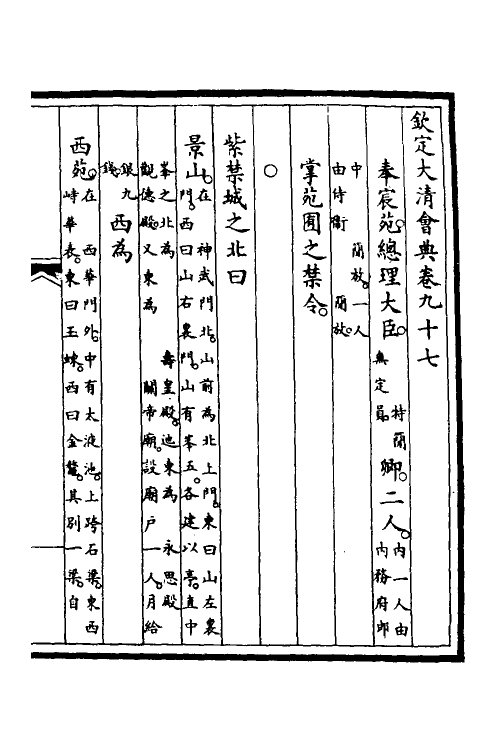 欽定大清會典卷九十七
奉宸苑。總理大臣。特簡無定員。卿。二人。內一人由內務府郎
中 簡放。一人由侍衛 簡放。
掌苑囿之禁令。
○
紫禁城之北曰
景山。在 神武門北。山前為北上門。東曰山左裏門。西曰山右裏門。山有峯五。各建以亭。直中
峯之北為 壽皇殿。迤東為 永思殿觀德殿。又東為 關帝廟。設廟戶一人。月給
銀九錢。西為
西苑。在 西華門外。中有太液池。上跨石梁。東西峙華表。東曰玉蝀。西曰金鰲。其別一梁。自